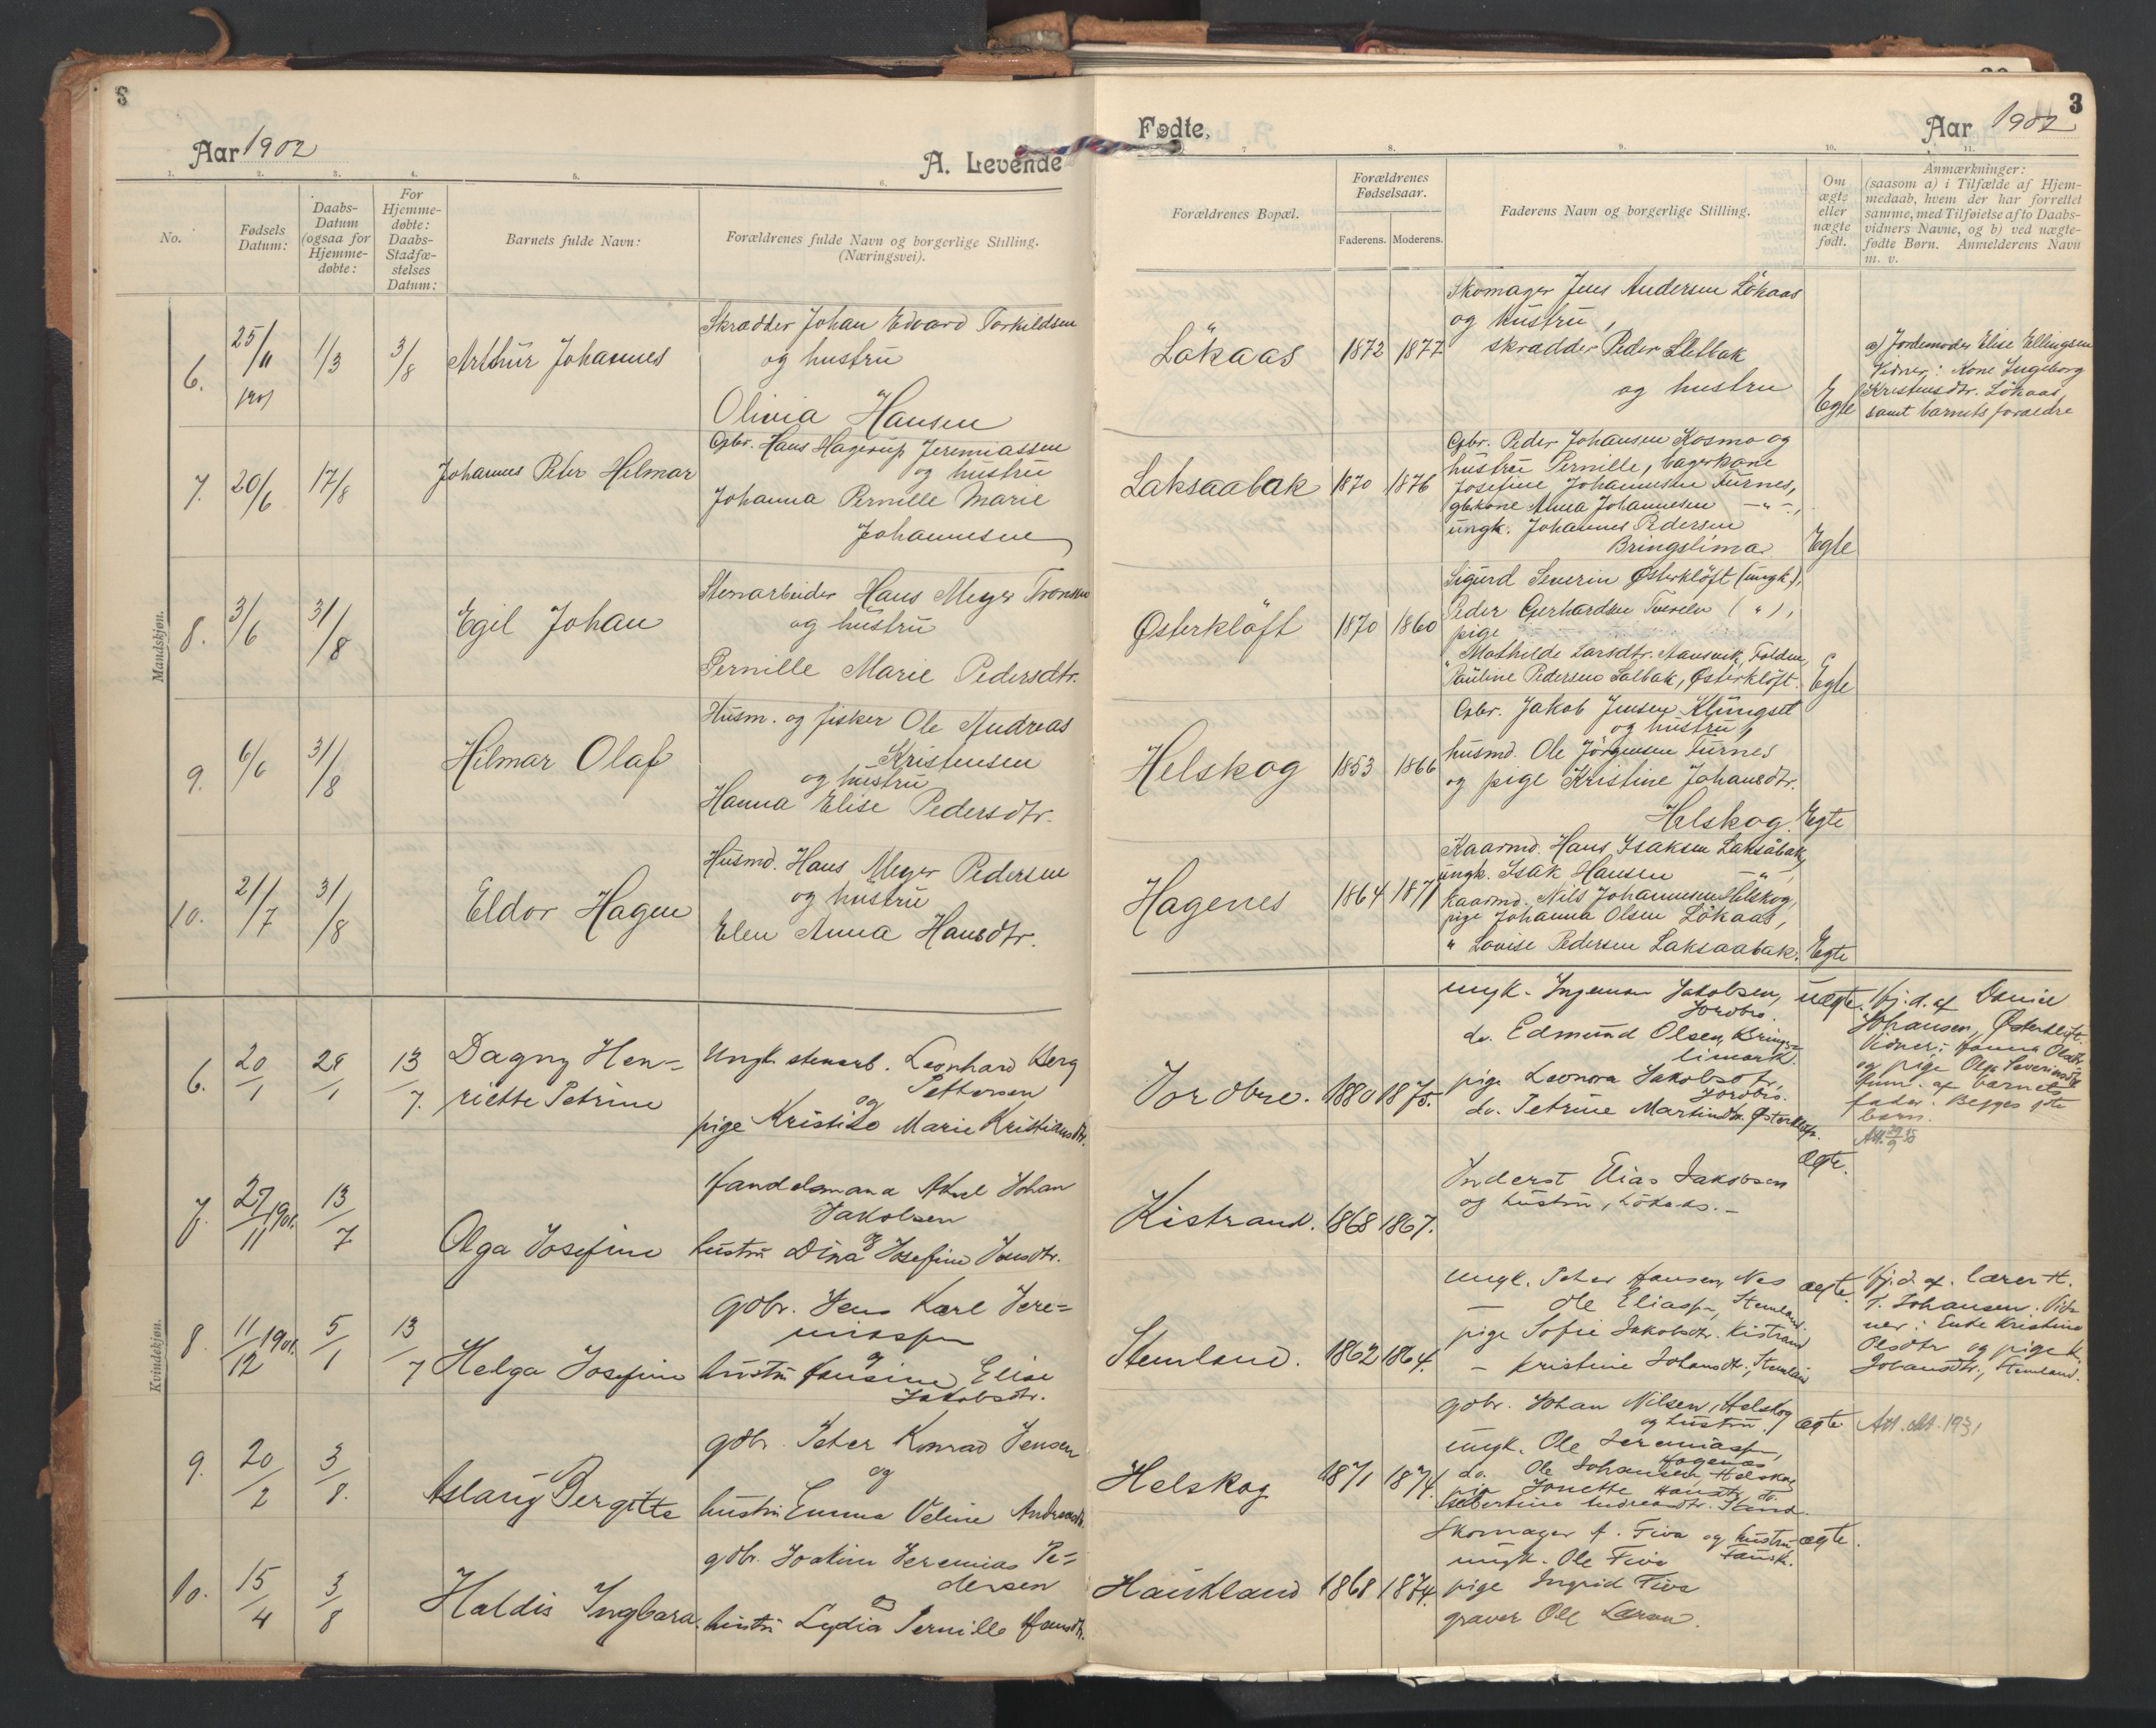 3
Aar 1902
A. Levende
1. 2. 3. 4. 5. 6.
No.
Fødsels Datum:
Daabs-Datum (ogsaa for Hjemme-døbte:
For Hjemme-døbte: Daabs-Stadfæ-stelses Datum:
Barnets fulde Navn:
Forældrenes fulde Navn og borgerlige Stilling. (Næringsvei).
Mandskjøn.
6. 25/11 1901 1/3 3/8 Arthur Johannes
Skrædder Johan Edvard Torkildsen
og hustru
Olivia Hansen
7. 20/6 17/8 Johannes Peter Hilmar
Gbr. Hans Hagerup Jeremiassen
og hustru
Johanna Pernille Marie
Johannesen
8. 3/6 31/8 Egil Johan
Stenarbeider Hans Meyer Tronsen
og hustru
Pernille Marie Pedersdtr.
9. 6/6 31/8 Hilmar Olaf
Husm. og fisker Ole Andreas
Kristensen
og hustru
Hanna Elise Pedersdtr.
10. 21/7 31/8 Eldor Hagen
Husmd. Hans Meyer Pedersen
og hustru
Elen Anna Hansdtr.
Kvindekjøn.
6. 20/1 28/1 13/7. Dagny Hen-
riette Petrine
Ungk. stenarb. Leonhard Berg
Pettersen
og
pige Marie Kristiansdtr.
7. 27/11 1901. 13/7 Olga Josefine
Handelsmand Aksel Johan
Jakobsen
og
hustru Dina Josefine Jensdtr.
8. 11/12 1901. 5/1 13/7 Helga Josefine
gdbr. Jens Karl Jere=
miassen
og
hustru Hansine Elise
Jakobsdtr.
9. 20/2 3/8. Aslaug Bergitte
gdbr. Peter Konrad Jensen
og
hustru Emma Veline Andreasdtr.
10. 15/4 3/8 Haldis Ingbora.
gdbr. Joakim Jeremias Pe=
dersen
og
hustru Lydia Pernille Hansdtr.
3
Fødte,
Aar 1902
7 8. 9. 10. 11.
Forældrenes Bopæl.
Forældrenes Fødselsaar.
Faderens. Moderens.
Faderens Navn og borgerlige Stilling.
Om ægte eller uægte født.
Anmærkninger:
(saasom a) i Tilfælde af Hjem-
medaab, hvem der har forrettet
samme, med Tilføielse af to Daabs-
vidners Navne, og b) ved uægte-
fødte Børn. Anmelderens Navn
m. v.
Lökaas 1872 1877
Skomager Jens Andersen Lökaas
og hustru,
skrædder Peder Sletbak
og hustru
Egte
a) Jordemoder Elise Ellingsen
Vidner: Kone Ingeborg
Kristensdtr. Lökaas
samt barnets forældre
Laksaabak 1870 1876
Gbr. Peder Johansen Kosmo og
hustru Pernille, bagerkone
Josefine Johannesen Furnes,
gbkone Anna Johannesen — " —,
ungk. Johannes Pedersen
Bringslimar
Egte
Østerklöft 1870 1860
Sigurd Severin Østerklöft (ungk.),
Peder Gerhardsen Tverelv ( " ),
pige
" Mathilde Larsdtr. Aansvik, Folden,
Pauline Pedersen Salbak, Østerklöft.
Egte
Helskog 1853 1866
Gbr. Jakob Jensen Klungset
og hustru,
husmd. Ole Jörgensen Furnes
og pige Kristine Johansdtr.
Helskog.
Egte
Hagenes 1864 1871
Kaarmd. Hans Isaksen Laksåbak,
ungk. Isak Hansen — " —,
kaarmd. Nils Johannesen Helskog,
pige Johanna Olsen Lökaas,
" Lovise Pedersen Laksaabak.
Egte
Jordbro. 1880 1875.
ungk. Ingeman Jakobsen,
Jordbro.
do. Edmund Olsen, Brings-
limark.
pige Leonora Jakobsdtr,
Jordbro.
do. Petrine Martinsdtr. Østerkløft.
uægte.
Hj. d. af Daniel
Johansen, Østerkløft.
Vidner: Hanna Olsdtr.
og pige Olga Severinsdtr
Anm. af barnets
fader. Begges 1ste
barn.
Kistrand. 1868 1867.
Inderst Elias Jakobsen
og hustru, Lökaas. —
ægte.
Stemland. 1862 1864.
ungk. Peter Hansen, Nes
— Ole Eliassen, Stemland.
pige Sofie Jakobsdtr. Kistrand
— Kristine Johansdtr., Stemland
ægte.
Hj. d. af. lærer H.
J. Johansen. Vid-
ner: Enke Kristine
Olsdtr og pige K.
Johansdtr., Stemland.
Helskog 1871 1874.
gdbr. Johan Nilsen, Helskog
og hustru,
ungk. Ole Jeremiassen,
Hagenæs
do. Ole Johansen, Helskog
pige Jonette Hansdtr. do.
Andreasdtr.
ægte
Att. okt. 1931
Haukland 1868 1874.
Skomager A. Fiva og hustru
ungk. Ole Fiva Fausk.
pige Ingrid Fiva
graver Ole Larsen.
ægte.